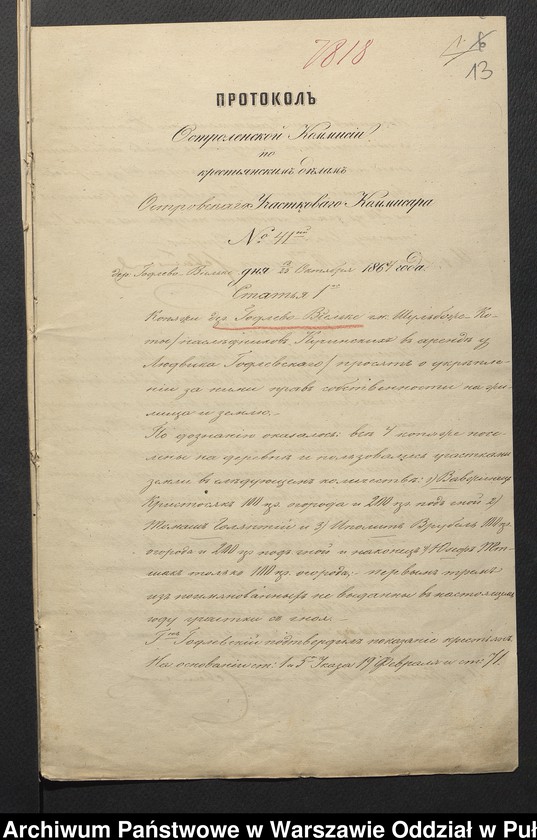 7818
1. 6
13
ПРОТОКОЛЪ
Остроленской Коммисіи
по
крестьянскимъ дѣламъ
Островскаго Участковаго Коммисара
№ 41
дер. Годлево Вельке дня Октября 1867 года.
Статья 1
Коняжи дер. Годлево Вельке гм. Шульборже-Ко-
ты въ арендѣ у
Людвика Годлевскаго просятъ о укрѣпле-
ніи за ними правъ собственности на жи-
лища и землю.
По дознанію оказалось: всѣ 4 посе-
лены на деревнѣ и пользовались участками
земли въ слѣдующемъ количествѣ: 1)
100 пр. огорода и 200 пр. подъ гной 2)
Томашъ и 3) Иполитъ Врубель 100 пр.
огорода и 200 пр. подъ гной и наконецъ 4) Юзефъ
только 100 пр. огорода, первымъ тремъ
изъ поимянованныхъ не выданы въ настоящемъ
году участки съ гноя.
Годлевскій подтвердилъ показаніе
На основаніи ст: 1 и 5 Указа 19 Февраля и ст: 71
Archiwum Państwowe w Warszawie Oddział w Puł